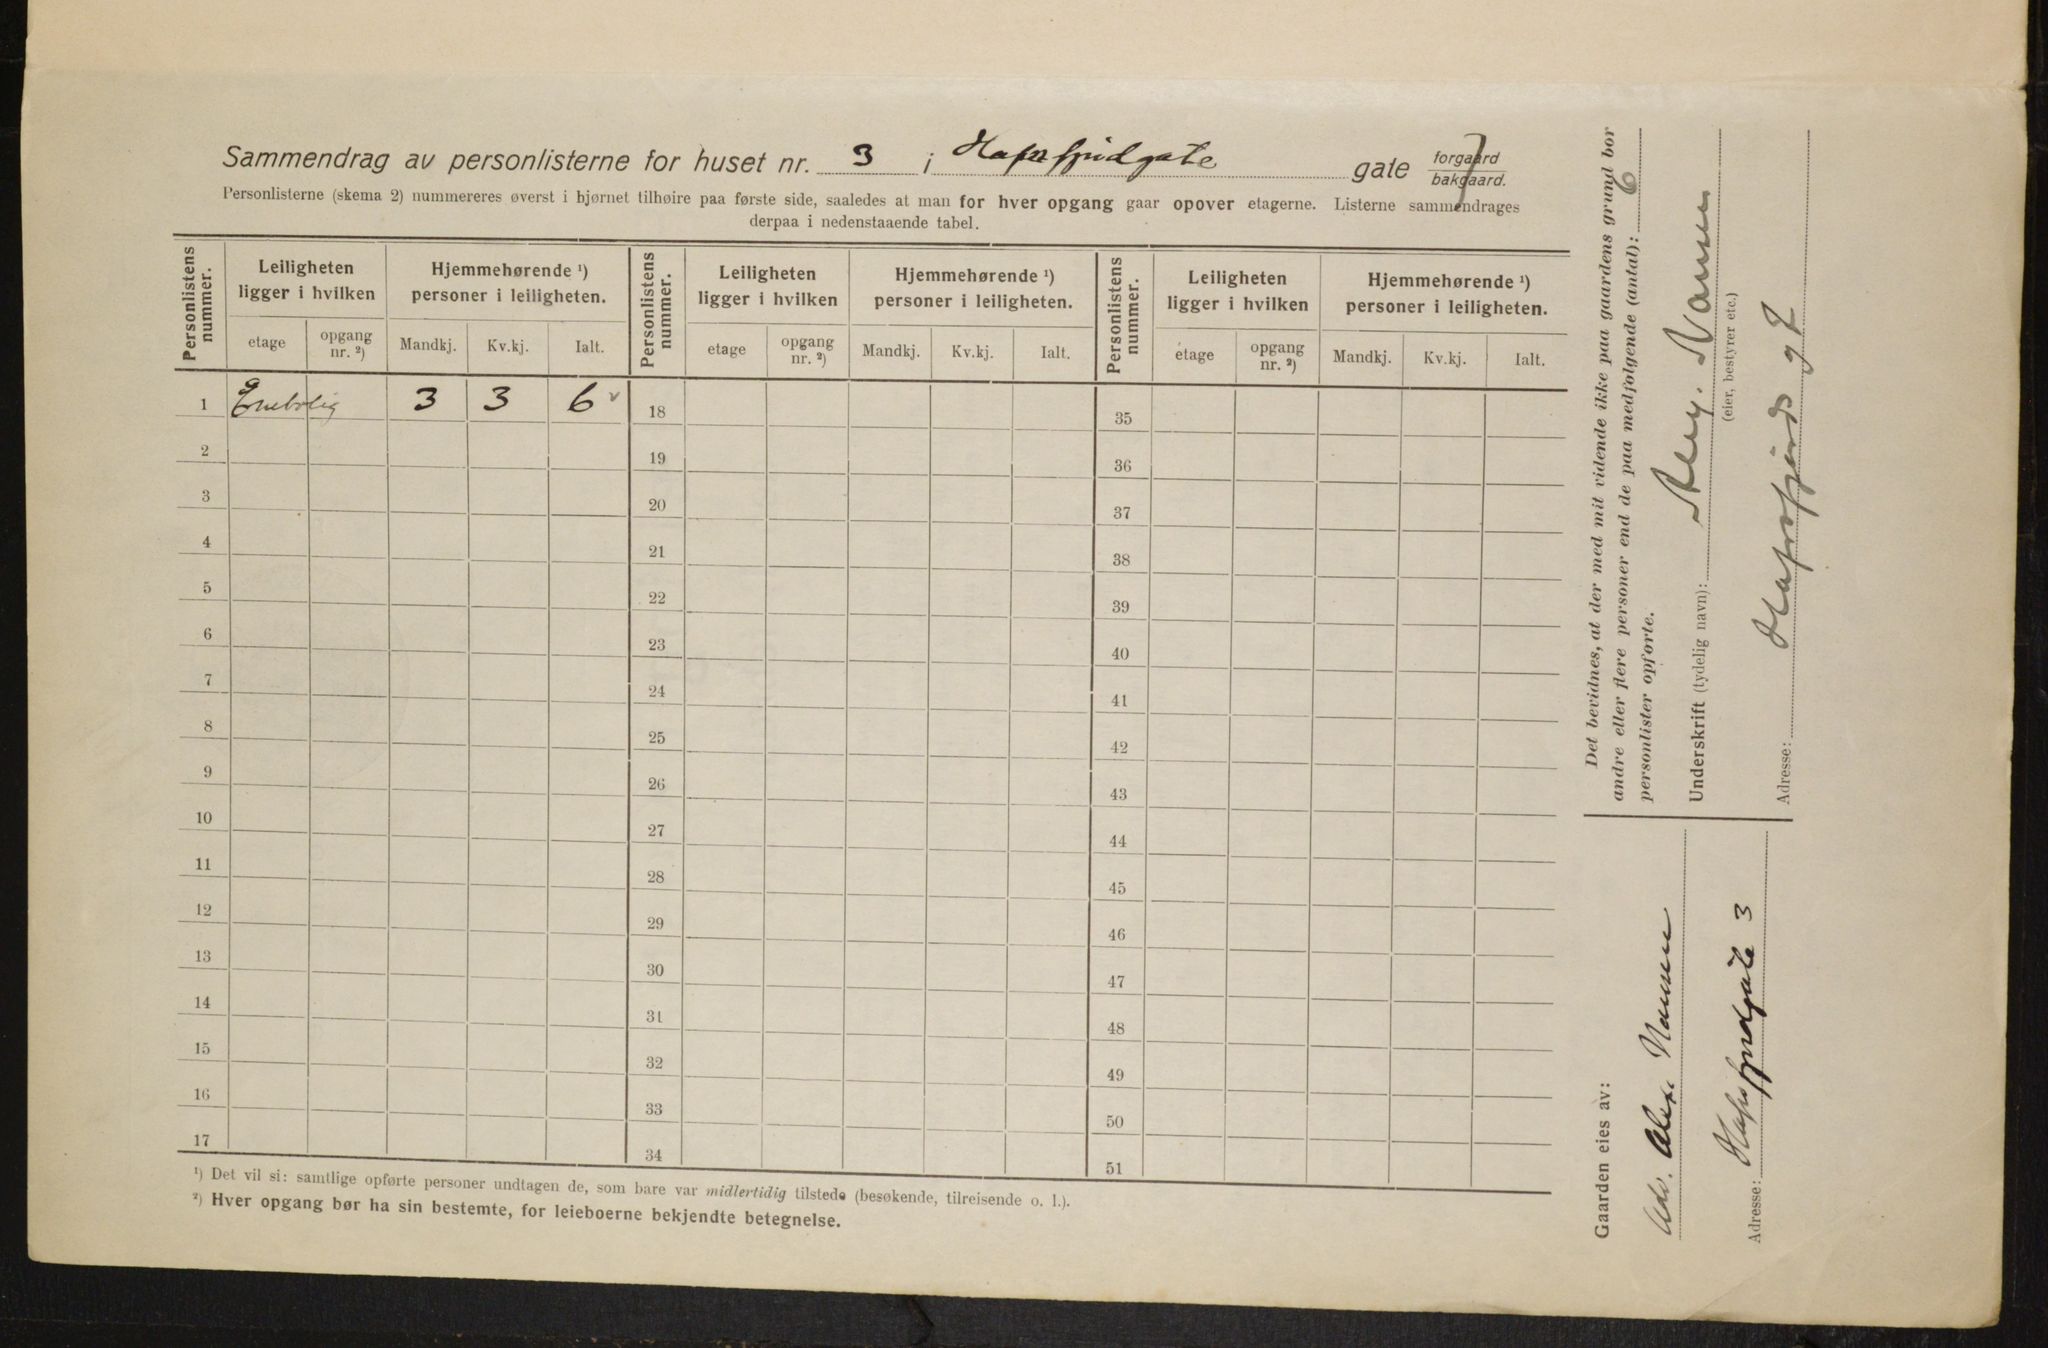 Sammendrag av personlisterne for huset nr. 3 i Hafrsfjordgate gate forgaard bakgaard.
Personlisterne (skema 2) nummereres øverst i hjørnet tilhøire paa første side, saaledes at man for hver opgang gaar opover etagerne. Listerne sammendrages
derpaa i nedenstaaende tabel.
Personlistens nummer. Leiligheten ligger i hvilken Hjemmehørende ¹) personer i leiligheten. Personlistens nummer. Leiligheten ligger i hvilken Hjemmehørende ¹) personer i leiligheten. Personlistens nummer. Leiligheten ligger i hvilken Hjemmehørende ¹) personer i leiligheten.
etage opgang nr. ²) Mandkj. Kv.kj. Ialt. etage opgang nr. ²) Mandkj. Kv.kj. Ialt. etage opgang nr. ²) Mandkj. Kv.kj. Ialt.
1 Enebolig 3 3 6 18 35
2 19 36
3 20 37
4 21 38
5 22 39
6 23 40
7 24 41
8 25 42
9 26 43
10 27 44
11 28 45
12 29 46
13 30 47
14 31 48
15 32 49
16 33 50
17 34 51
¹) Det vil si: samtlige opførte personer undtagen de, som bare var midlertidig tilstede (besøkende, tilreisende o. l.).
²) Hver opgang bør ha sin bestemte, for leieboerne bekjendte betegnelse.
Det bevidnes, at der med mit vidende ikke paa gaardens grund bor
andre eller flere personer end de paa medfølgende (antal): 6
personlister opførte.
Underskrift (tydelig navn): Alex. Nansen
(eier, bestyrer etc.)
Adresse: Hafrsfjords g 7
Gaarden eies av:
Adv. Alex. Nansen
Adresse: Hafrsfjordgate 3